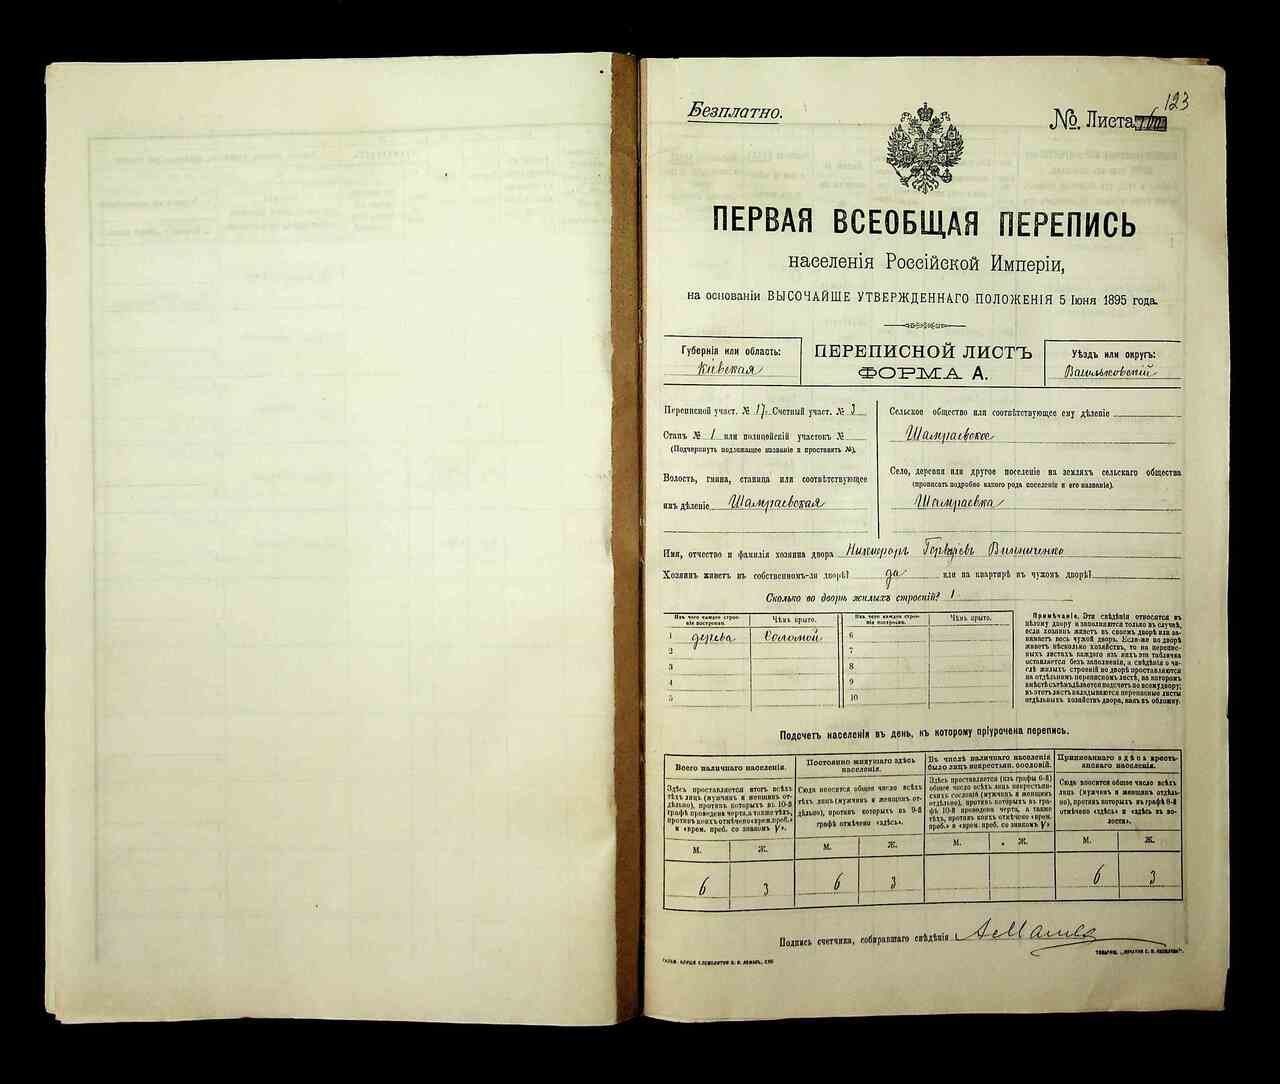 123
Безплатно.
№. Листа
ПЕРВАЯ ВСЕОБЩАЯ ПЕРЕПИСЬ
населенія Россійской Имперіи,
на основаніи ВЫСОЧАЙШЕ УТВЕРЖДЕННАГО ПОЛОЖЕНІЯ 5 Іюня 1895 года.
Губернія или область:
Кіевская
ПЕРЕПИСНОЙ ЛИСТЪ
ФОРМА А.
Уѣздъ или округъ:
Васильковскій
Переписной участ. № 17. Счетный участ. № 3
Станъ № 1 или полицейскій участокъ №
(Подчеркнуть подлежащее названіе и проставить №).
Волость, гмина, станица или соотвѣтствующее
имъ дѣленіе Шамраевская
Сельское общество или соотвѣтствующее ему дѣленіе
Шамраевское
Село, деревня или другое поселеніе на земляхъ сельскаго общества
(прописать подробно какого рода поселеніе и его названіе).
Шамраевка
Имя, отчество и фамилія хозяина двора Винниченко
Хозяинъ живетъ въ собственномъ-ли дворѣ? да или на квартирѣ въ чужомъ дворѣ?
Сколько во дворѣ жилыхъ строеній? 1
Изъ чего каждое строе-
ніе построено. Чѣмъ крыто. Изъ чего каждое строе-
ніе построено. Чѣмъ крыто.
1 дерева Соломой 6
2 7
3 8
4 9
5 10
Примѣчаніе. Эти свѣдѣнія относятся къ
цѣлому двору и заполняются только въ случаѣ,
если хозяинъ живетъ въ своемъ дворѣ или за-
нимаетъ весь чужой дворъ. Если-же во дворѣ
живетъ нѣсколько хозяйствъ, то на перепис-
ныхъ листахъ каждаго изъ нихъ эта табличка
оставляется безъ заполненія, а свѣдѣнія о чи-
слѣ жилыхъ строеній во дворѣ проставляются
на отдѣльномъ переписномъ листѣ, на которомъ
вмѣстѣ съ тѣмъ дѣлается подсчетъ по всему двору;
въ этотъ листъ вкладываются переписные листы
отдѣльныхъ хозяйствъ двора, какъ въ обложку.
Подсчетъ населенія въ день, къ которому пріурочена перепись.
Всего наличнаго населенія.
Здѣсь проставляется итогъ всѣхъ
тѣхъ лицъ (мужчинъ и женщинъ от-
дѣльно), противъ которыхъ въ 10-й
графѣ проведена черта, а также тѣхъ,
противъ коихъ отмѣчено «врем. преб.»
и «врем. преб. со знакомъ V».
Постоянно живущаго здѣсь
населенія.
Сюда вносится общее число всѣхъ
тѣхъ лицъ (мужчинъ и женщинъ от-
дѣльно), противъ которыхъ въ 9-й
графѣ отмѣчено «здѣсь».
Въ числѣ наличнаго населенія
было лицъ некрестьян. сословій.
Здѣсь проставляется (изъ графы 6-й)
общее число всѣхъ лицъ некрестьян-
скихъ сословій (мужчинъ и женщинъ
отдѣльно), противъ которыхъ въ гра-
фѣ 10-й проведена черта, а также
тѣхъ, противъ коихъ отмѣчено «врем.
преб.» и «врем. преб. со знакомъ V».
Приписаннаго здѣсь кресть-
янскаго населенія.
Сюда вносится общее число всѣхъ
лицъ (мужчинъ и женщинъ отдѣль-
но), противъ которыхъ въ графѣ 8-й
отмѣчено «здѣсь» и «здѣсь въ во-
лости».
М. Ж. М. Ж. М. Ж. М. Ж.
6 3 6 3 6 3
Подпись счетчика, собиравшаго свѣдѣнія